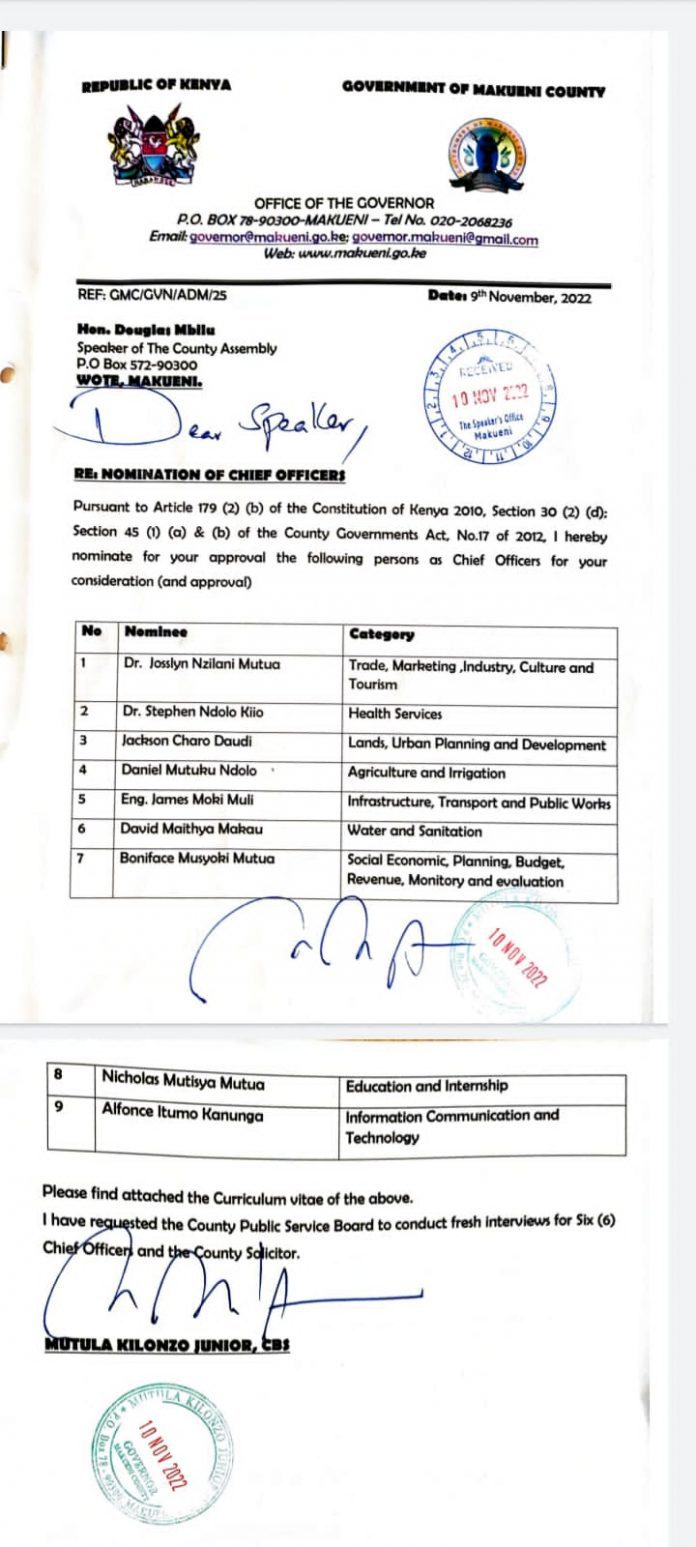 REPUBLIC OF KENYA
GOVERNMENT OF MAKUENI COUNTY
HARAMBEE
OFFICE OF THE GOVERNOR
P.O. BOX 78-90300-MAKUENI – Tel No. 020-2068236
Email: governor@makueni.go.ke; governor.makueni@gmail.com
Web: www.makueni.go.ke
REF: GMC/GVN/ADM/25
Date: 9th November, 2022
Hon. Douglas Mbilu
Speaker of The County Assembly
P.O Box 572-90300
WOTE, MAKUENI.
RECEIVED
10 NOV 2022
The Speaker's Office
Makueni
Dear Speaker,
RE: NOMINATION OF CHIEF OFFICERS
Pursuant to Article 179 (2) (b) of the Constitution of Kenya 2010, Section 30 (2) (d);
Section 45 (1) (a) & (b) of the County Governments Act, No.17 of 2012, I hereby
nominate for your approval the following persons as Chief Officers for your
consideration (and approval)
No Nominee Category
1 Dr. Josslyn Nzilani Mutua Trade, Marketing ,Industry, Culture and
Tourism
2 Dr. Stephen Ndolo Kiio Health Services
3 Jackson Charo Daudi Lands, Urban Planning and Development
4 Daniel Mutuku Ndolo Agriculture and Irrigation
5 Eng. James Moki Muli Infrastructure, Transport and Public Works
6 David Maithya Makau Water and Sanitation
7 Boniface Musyoki Mutua Social Economic, Planning, Budget,
Revenue, Monitory and evaluation
10 NOV 2022
8 Nicholas Mutisya Mutua Education and Internship
9 Alfonce Itumo Kanunga Information Communication and
Technology
Please find attached the Curriculum vitae of the above.
I have requested the County Public Service Board to conduct fresh interviews for Six (6)
Chief Officers and the County Solicitor.
MUTULA KILONZO JUNIOR, CBS
MUTULA KILONZO JUNIOR
10 NOV 2022
GOVERNOR
MAKUENI COUNTY